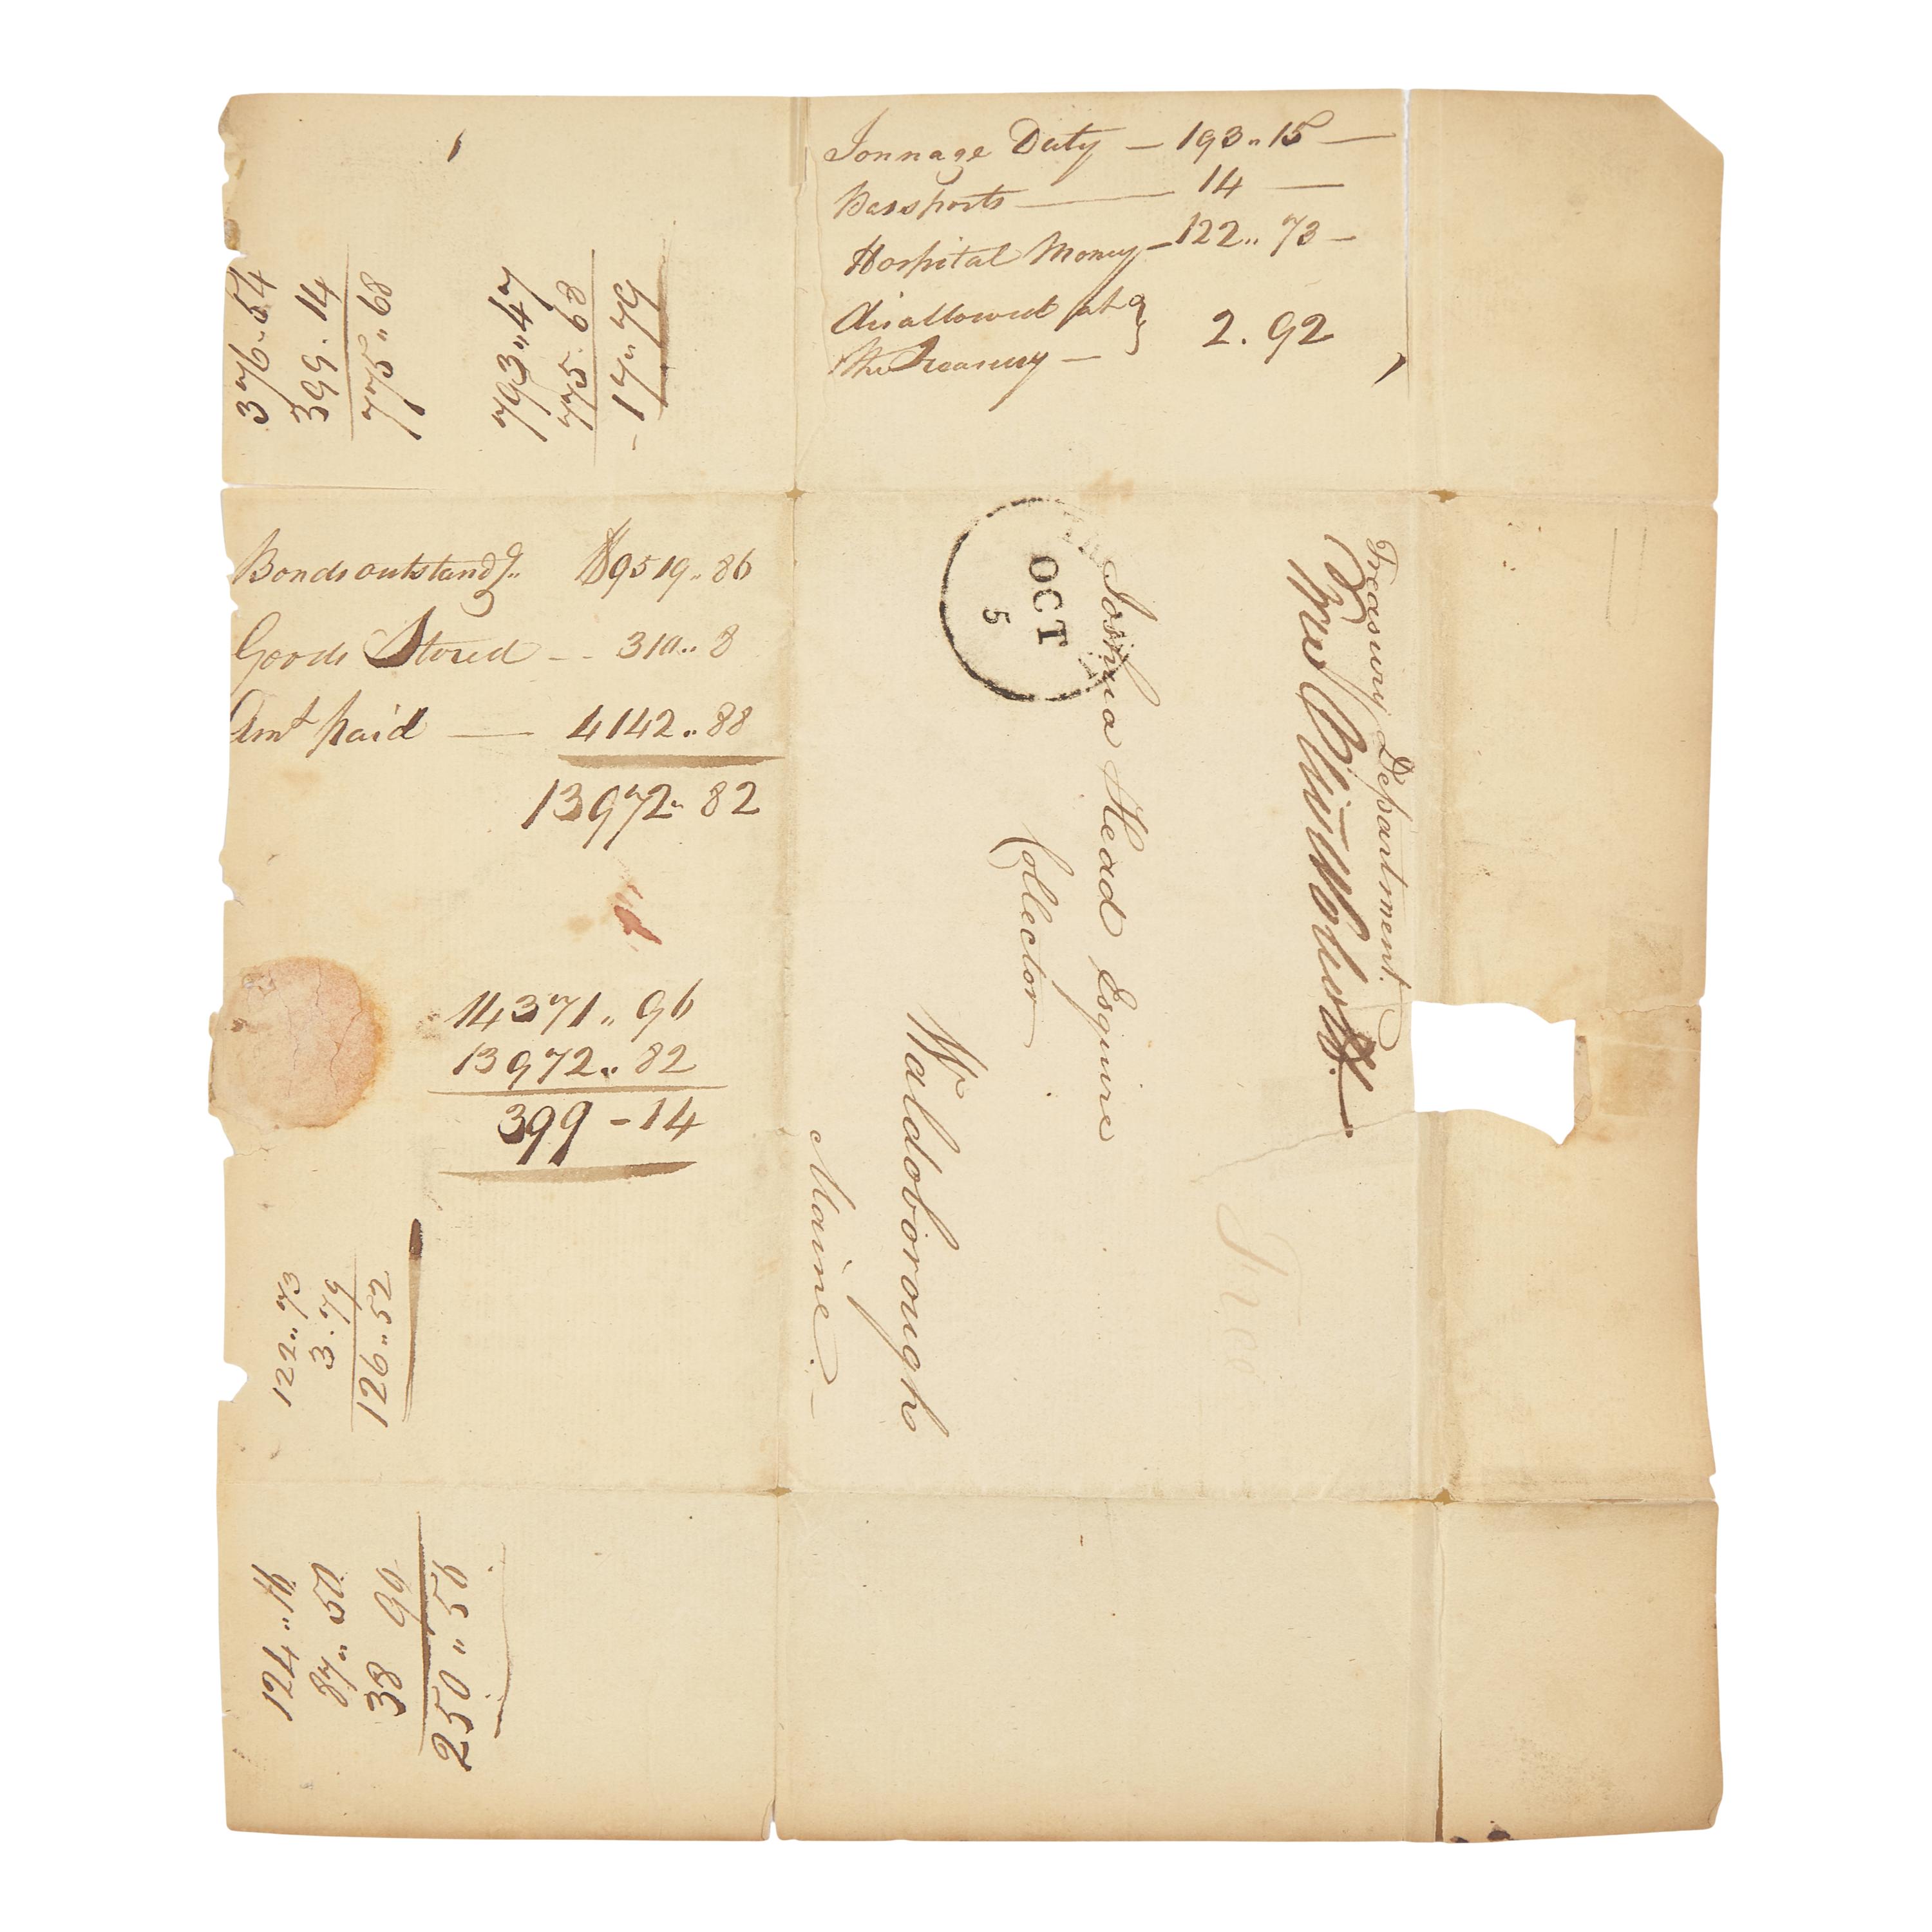 Tonnage Duty — 193.. 15 —
Passports — 14 —
Hospital Money — 122.. 73 —
disallowed at }
the Treasury — } 2. 92
376.. 54
399. 14
775.. 68
793.. 47
775. 68
17.. 79
Bonds outstandg.. $9519.. 86
Goods Stored -- 310.. 8
Amt paid — 4142.. 88
13972.. 82
14371.. 96
13972.. 82
399 - 14
122.. 73
3. 79
126.. 52
124.. 16
87.. 50
38 90
250.. 56
Treasury Department.
Free
OCT
5
Joshua Head Esquire
Collector
Waldoborough
Maine. —